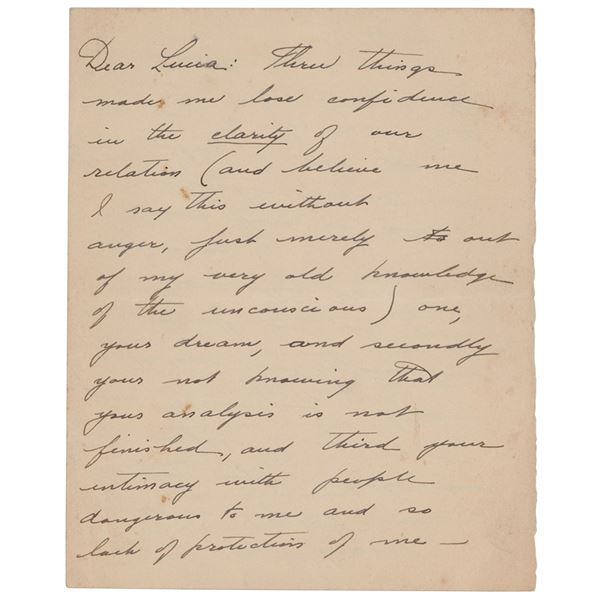 Dear Lucia: Three things
made me lose confidence
in the clarity of our
relation (and believe me
I say this without
anger, just merely to out
of my very old knowledge
of the unconscious) one,
your dream, and secondly
your not knowing that
your analysis is not
finished, and third your
intimacy with people
dangerous to me and so
lack of protection of me –